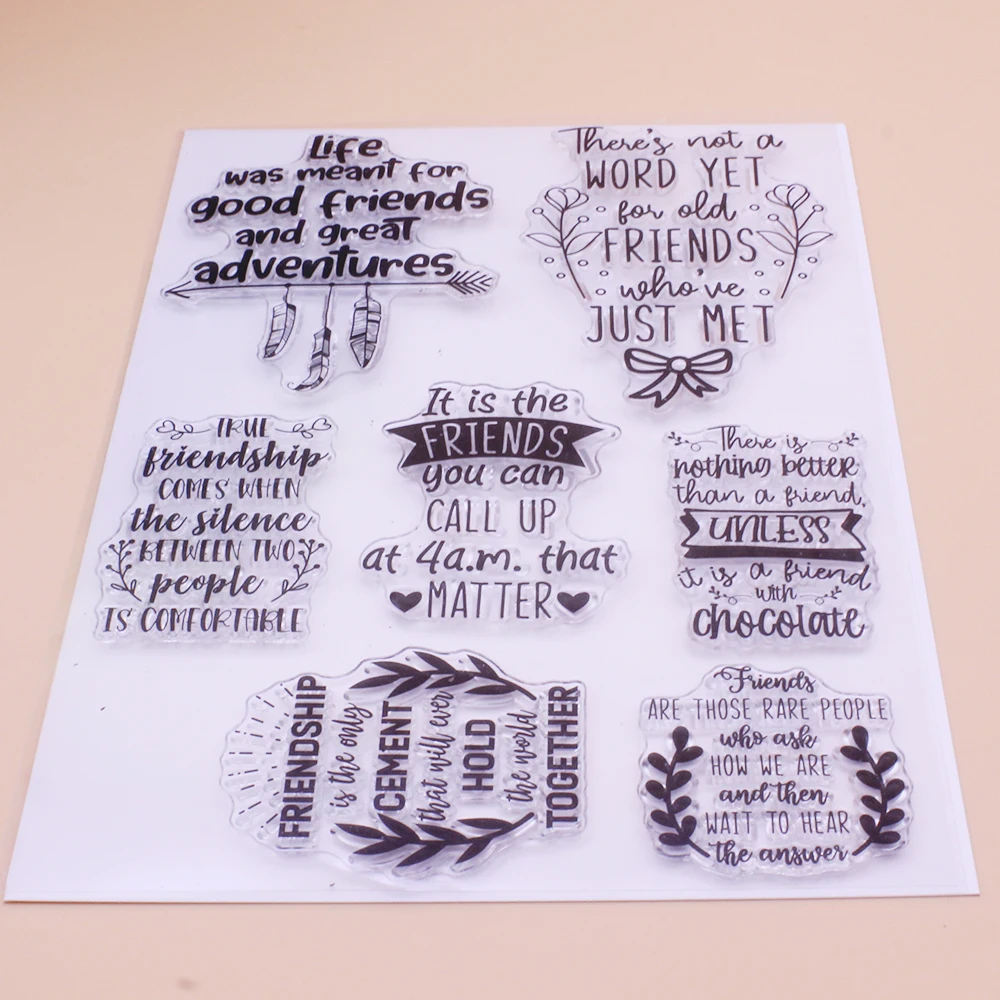 Life
was meant for
good friends
and great
adventures
There's not a
WORD YET
for old
FRIENDS
who've
JUST MET
TRUE
friendship
COMES WHEN
the silence
BETWEEN TWO
people
IS COMFORTABLE
It is the
FRIENDS
you can
CALL UP
at 4a.m. that
MATTER
There is
nothing better
than a friend,
UNLESS
it is a friend
with
chocolate
FRIENDSHIP
is the only
CEMENT
that will ever
HOLD
the world
TOGETHER
Friends
ARE THOSE RARE PEOPLE
who ask
HOW WE ARE
and then
WAIT TO HEAR
the answer